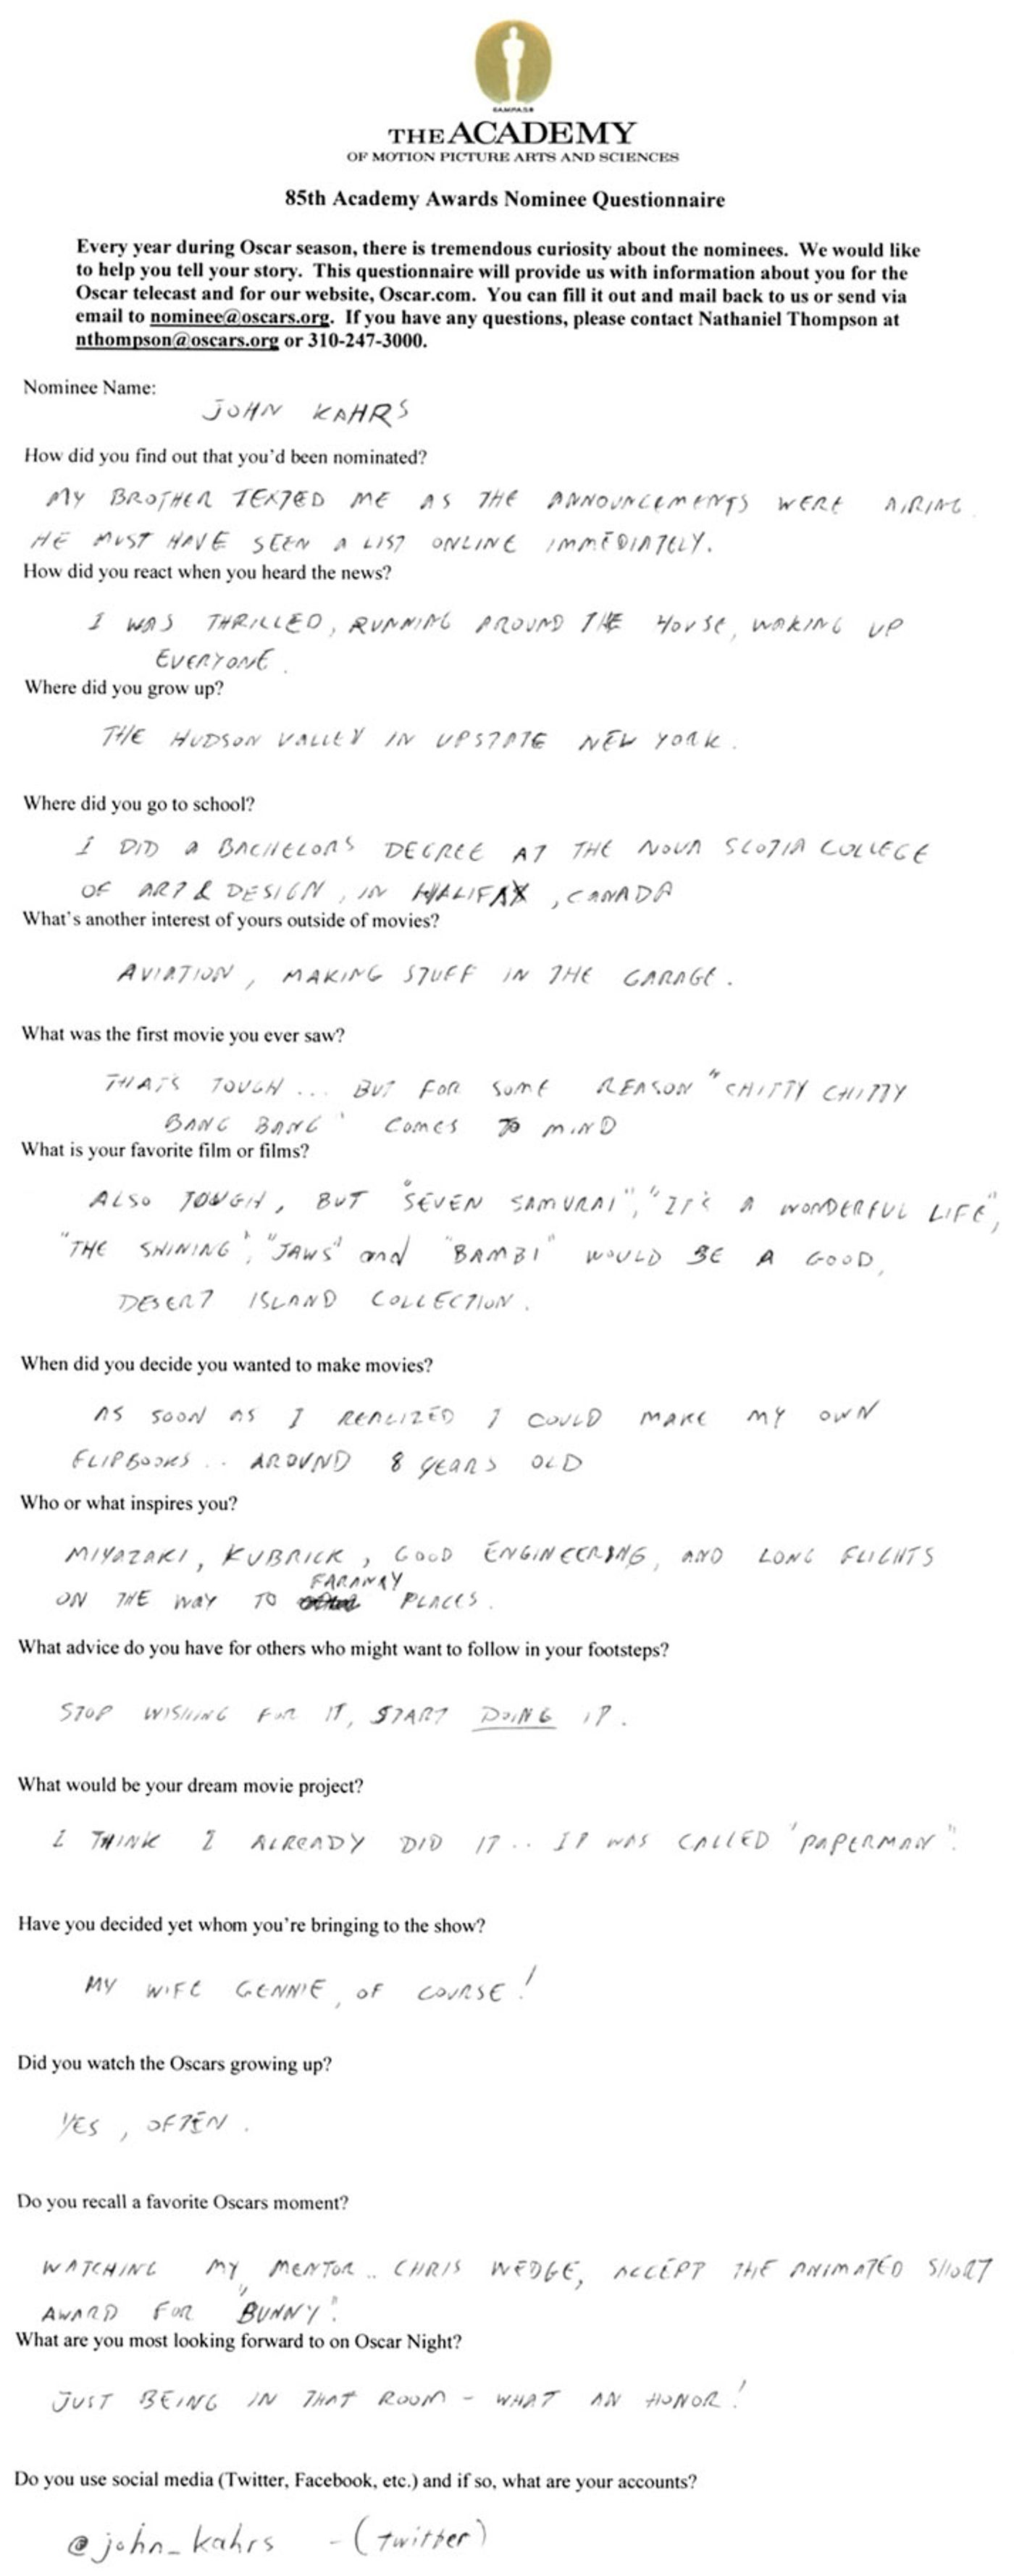 THE ACADEMY
OF MOTION PICTURE ARTS AND SCIENCES
85th Academy Awards Nominee Questionnaire
Every year during Oscar season, there is tremendous curiosity about the nominees. We would like
to help you tell your story. This questionnaire will provide us with information about you for the
Oscar telecast and for our website, Oscar.com. You can fill it out and mail back to us or send via
email to nominee@oscars.org. If you have any questions, please contact Nathaniel Thompson at
nthompson@oscars.org or 310-247-3000.
Nominee Name:
JOHN KAHRS
How did you find out that you'd been nominated?
MY BROTHER TEXTED ME AS THE ANNOUNCEMENTS WERE AIRING.
HE MUST HAVE SEEN A LIST ONLINE IMMEDIATELY.
How did you react when you heard the news?
I WAS THRILLED, RUNNING AROUND THE HOUSE, WAKING UP
EVERYONE.
Where did you grow up?
THE HUDSON VALLEY IN UPSTATE NEW YORK.
Where did you go to school?
I DID A BACHELORS DEGREE AT THE NOVA SCOTIA COLLEGE
OF ART & DESIGN, IN HALIFAX, CANADA
What's another interest of yours outside of movies?
AVIATION, MAKING STUFF IN THE GARAGE.
What was the first movie you ever saw?
THATS TOUGH... BUT FOR SOME REASON "CHITTY CHITTY
BANG BANG' COMES TO MIND
What is your favorite film or films?
ALSO TOUGH, BUT "SEVEN SAMURAI", "IT'S A WONDERFUL LIFE",
"THE SHINING", "JAWS" and "BAMBI" WOULD BE A GOOD,
DESERT ISLAND COLLECTION.
When did you decide you wanted to make movies?
AS SOON AS I REALIZED I COULD MAKE MY OWN
FLIPBOOKS.. AROUND 8 YEARS OLD
Who or what inspires you?
MIYAZAKI, KUBRICK, GOOD ENGINEERING, AND LONG FLIGHTS
ON THE WAY TO FARAWAY PLACES.
What advice do you have for others who might want to follow in your footsteps?
STOP WISHING FOR IT, START DOING IT.
What would be your dream movie project?
I THINK I ALREADY DID IT.. IT WAS CALLED "PAPERMAN".
Have you decided yet whom you're bringing to the show?
MY WIFE GENNIE, OF COURSE!
Did you watch the Oscars growing up?
YES, OFTEN.
Do you recall a favorite Oscars moment?
WATCHING MY MENTOR.. CHRIS WEDGE, ACCEPT THE ANIMATED SHORT
AWARD FOR "BUNNY".
What are you most looking forward to on Oscar Night?
JUST BEING IN THAT ROOM - WHAT AN HONOR!
Do you use social media (Twitter, Facebook, etc.) and if so, what are your accounts?
@john_kahrs - (twitter)